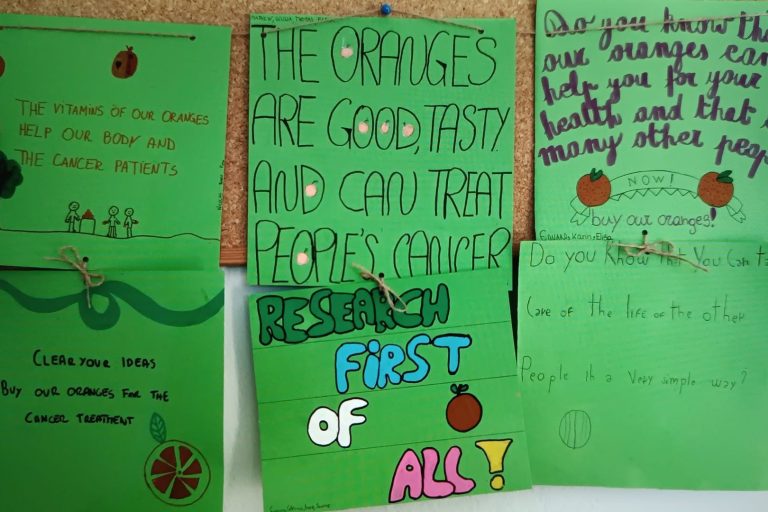 THE VITAMINS OF OUR ORANGES
HELP OUR BODY AND
THE CANCER PATIENTS
THE ORANGES
ARE GOOD, TASTY
AND CAN TREAT
PEOPLE'S CANCER
Do you know tha
our oranges can
help you for your
health and that
many other peop
NOW!
buy our oranges!
CLEAR YOUR IDEAS
BUY OUR ORANGES FOR THE
CANCER TREATMENT
RESEARCH
FIRST
OF
ALL!
EDUARD, Karin, Elisa
Do you know that You Can ta
Care of the life of the other
People in a very simple way?